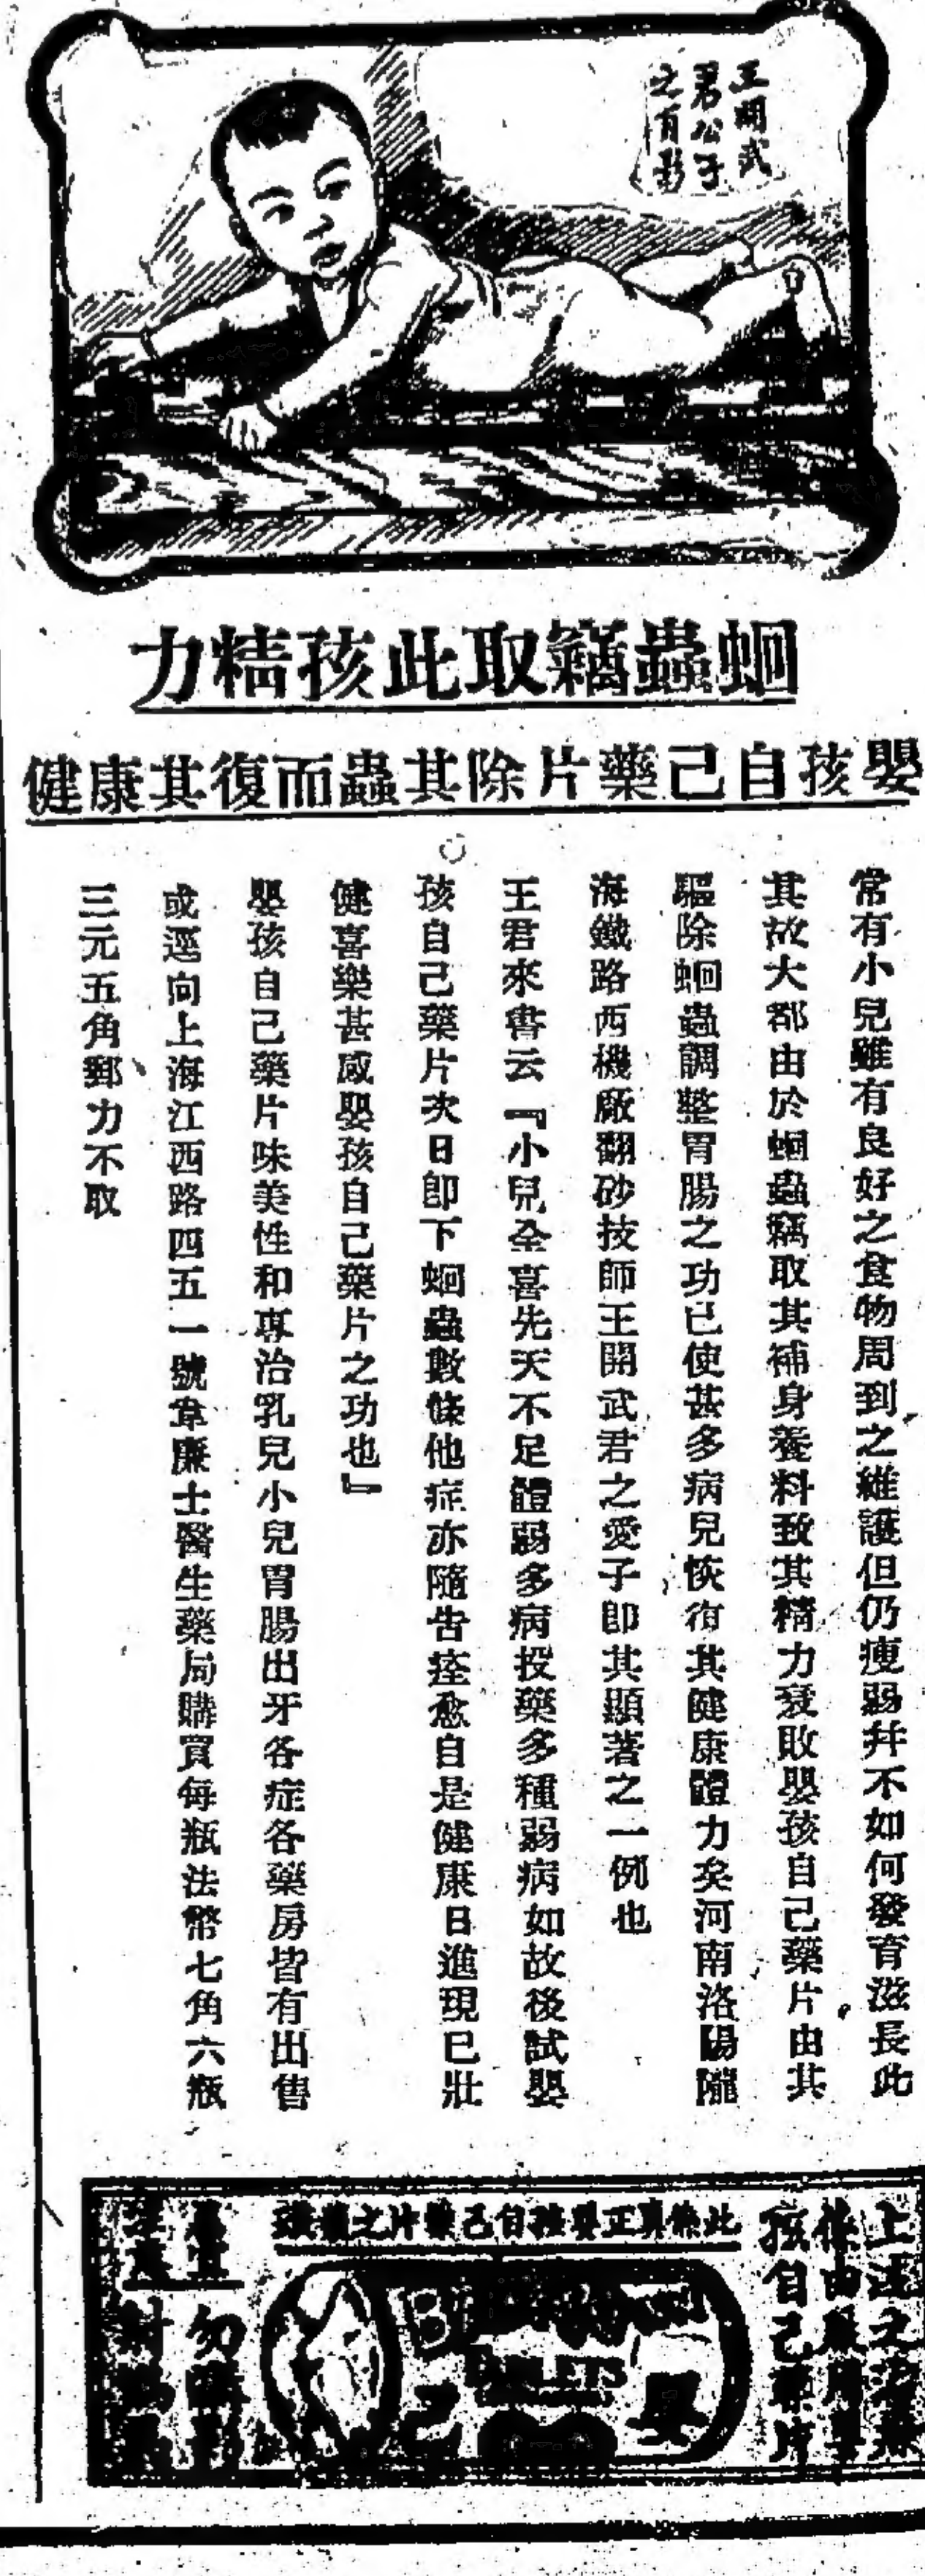 王開武
君公子
之肖影
蛔蟲竊取此孩精力
嬰孩自己藥片除其蟲而復其康健
常有小兒雖有良好之食物周到之維護但仍瘦弱幷不如何發育滋長此
其故大都由於蛔蟲竊取其補身養料致其精力衰敗嬰孩自己藥片由其
驅除蛔蟲調整胃腸之功已使甚多病兒恢復其健康體力矣河南洛陽隴
海鐵路西機廠翻砂技師王開武君之愛子卽其顯著之一例也
王君來書云『小兒全喜先天不足體弱多病投藥多種弱病如故後試嬰
孩自己藥片次日卽下蛔蟲數條他症亦隨告痊愈自是健康日進現已壯
健喜樂甚感嬰孩自己藥片之功也』
嬰孩自己藥片味美性和專治乳兒小兒胃腸出牙各症各藥房皆有出售
或逕向上海江西路四五一號韋廉士醫生藥局購買每瓶法幣七角六瓶
三元五角郵力不取
上述之
孩自己藥片
此條真正嬰孩自己藥片之
TABLETS